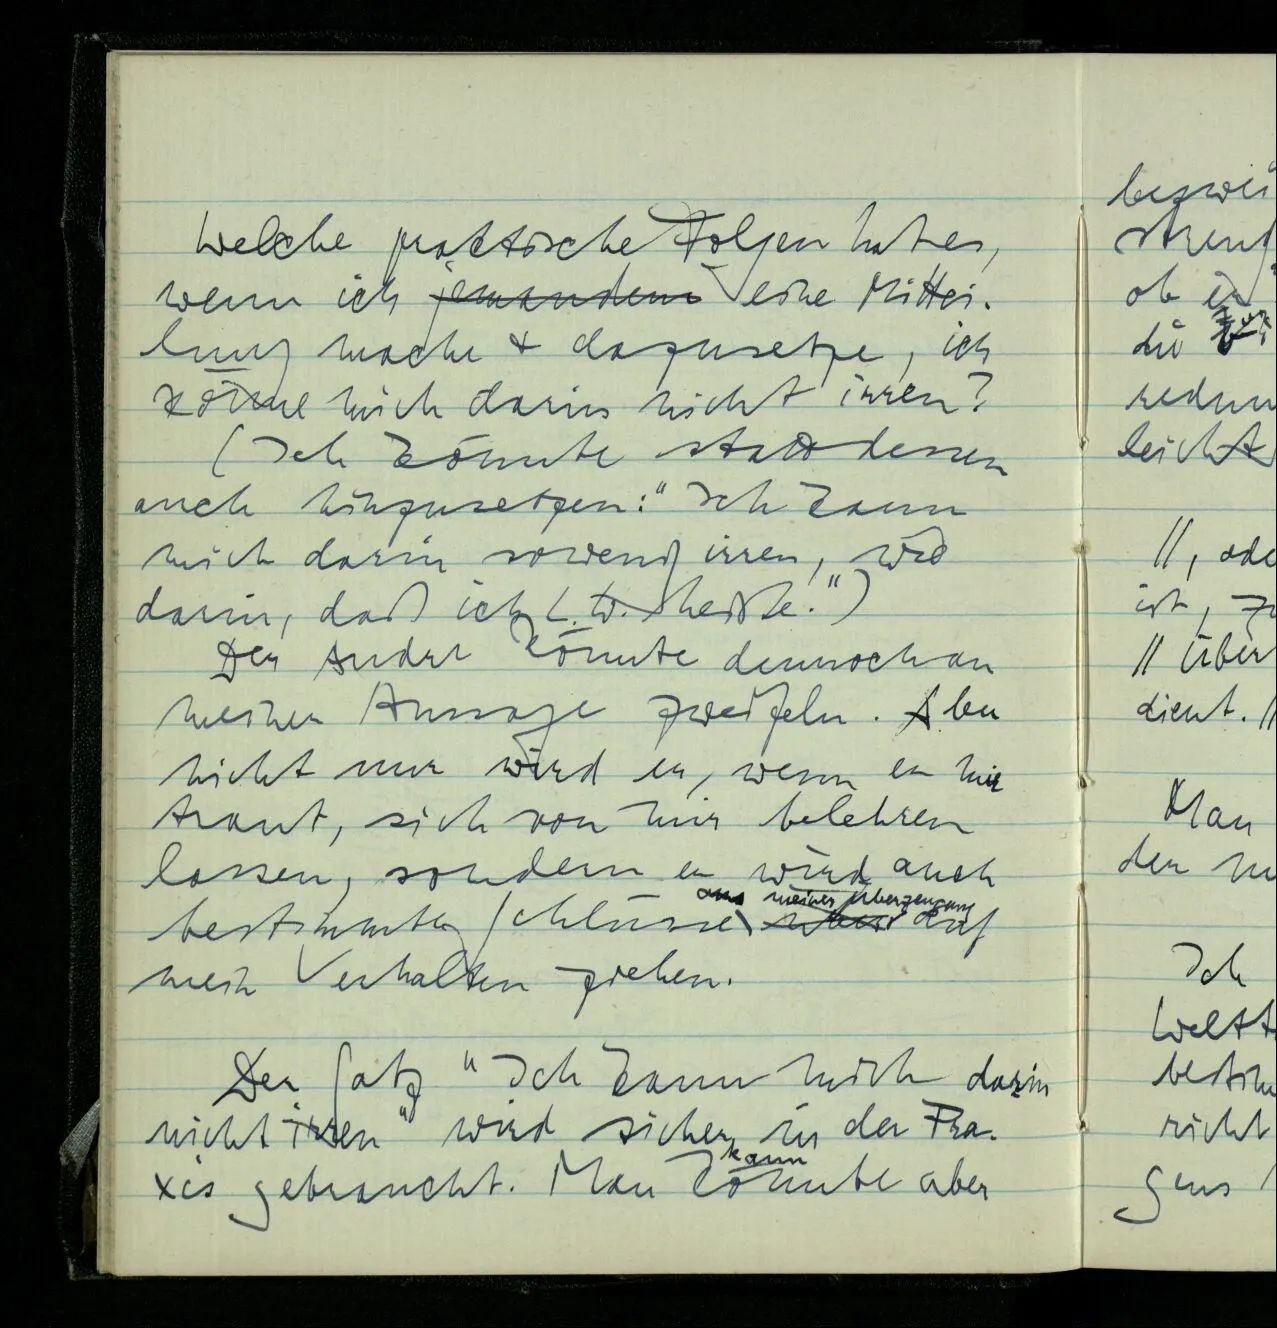 Welche praktische Folgen hat es,
wenn ich jemandem eine Mittei-
lung mache & dazusetze, ich
könne mich darin nicht irren?
(Ich könnte statt dessen
auch hinzusetzen: "Ich kann
mich darin sowenig irren, wie
darin, daß ich L.W. heiße.")
Der Andre könnte dennoch an
meiner Aussage zweifeln. Aber
nicht nur wird er, wenn er mir
traut, sich von mir belehren
lassen, sondern er wird auch
aus meiner Überzeugung
bestimmte Schlüsse auf
mein Verhalten ziehen.
Der Satz "Ich kann mich darin
nicht irren" wird sicher in der Pra-
kann
xis gebraucht. Man könnte aber
bezwei
streng
ob
die
redun
leicht
//, ode
ist, zu
// über
dient. //
Man
der
Ich
Welt
bestim
richt
gens